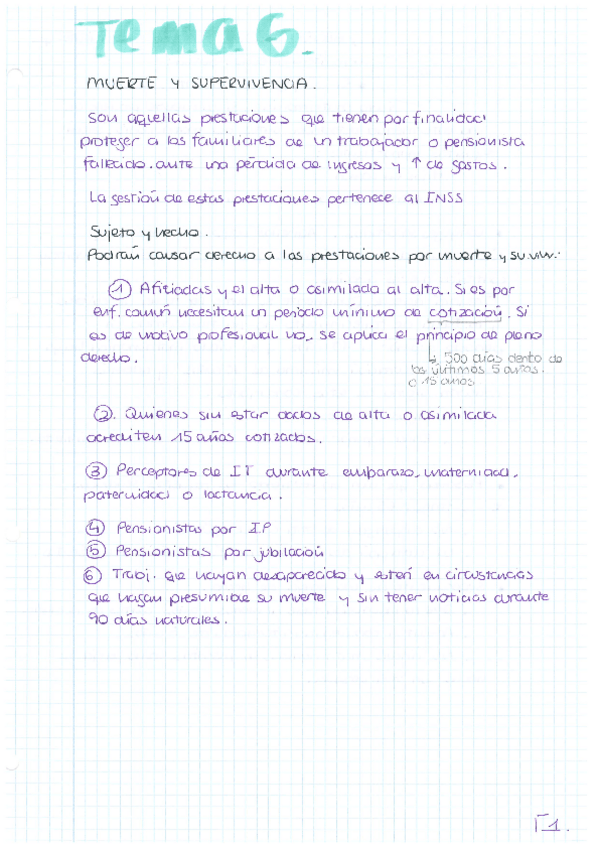 Tema 6.
MUERTE Y SUPERVIVENCIA.
Son aquellas prestaciones que tienen por finalidad
proteger a los familiares de un trabajador o pensionista
fallecido. ante una pérdida de ingresos y ↑ de gastos.
La gestión de estas prestaciones pertenece al INSS
Sujeto y hecho.
Podrán causar derecho a las prestaciones por muerte y su.viv.:
① Afiliadas y el alta o asimilada al alta. Si es por
enf. común necesitan un periodo mínimo de cotización. Si
es de motivo profesional no.. se aplica el principio de pleno
derecho.
↳ 500 días dento de
los últimos 5 años.
o 15 años
②. Quienes sin estar dados de alta o asimilada
acrediten 15 años cotizados.
③ Perceptores de IT durante embarazo, maternidad,
paternidad o lactancia.
④ Pensionistas por IP
⑤ Pensionistas por jubilación
⑥ Trabj. que hayan desaparecido y esten en circustancias
que hagan presumible su muerte y sin tener noticias durante
90 días naturales.
1.